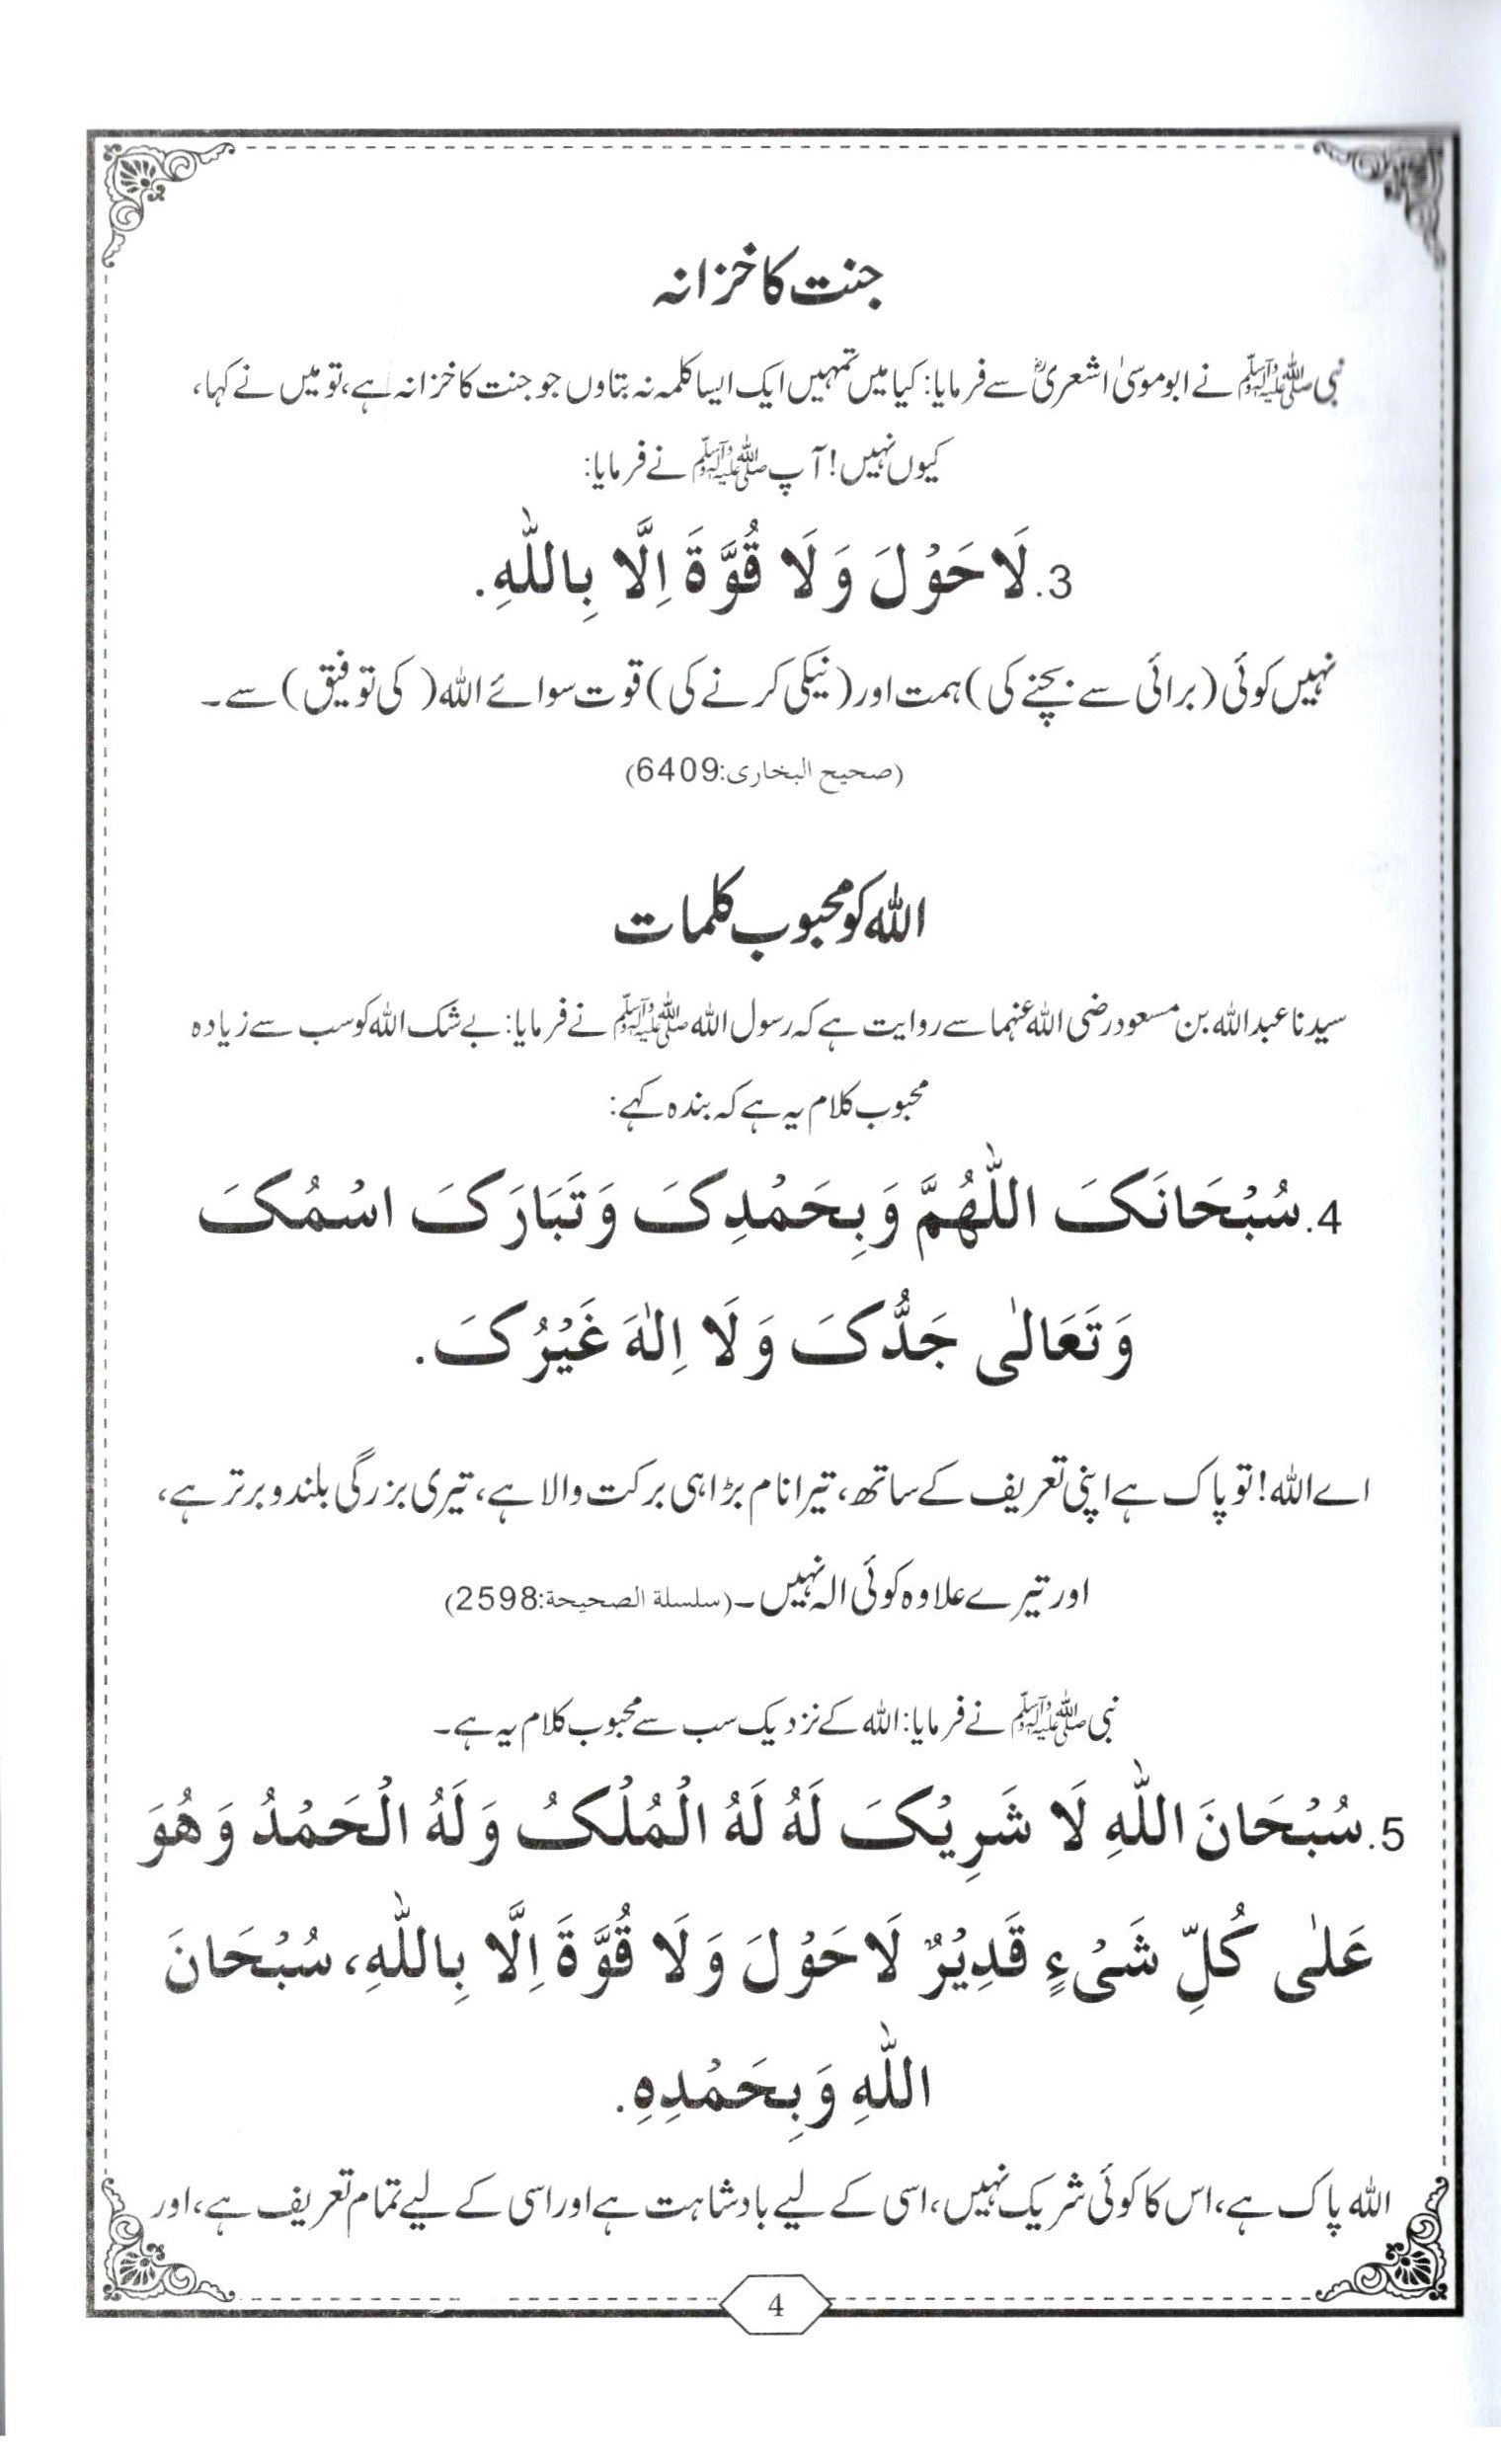 جنت کا خزانہ
نبی ﷺ نے ابو موسیٰ اشعریؓ سے فرمایا: کیا میں تمہیں ایک ایسا کلمہ نہ بتاوں جو جنت کا خزانہ ہے، تو میں نے کہا،
کیوں نہیں! آپ ﷺ نے فرمایا:
3. لَا حَوْلَ وَ لَا قُوَّةَ اِلَّا بِاللّٰهِ.
نہیں کوئی (برائی سے بچنے کی) ہمت اور (نیکی کرنے کی) قوت سوائے اللہ (کی توفیق) سے۔
(صحيح البخارى:6409)
اللہ کو محبوب کلمات
سیدنا عبداللہ بن مسعود رضی اللہ عنہما سے روایت ہے کہ رسول اللہ ﷺ نے فرمایا: بے شک اللہ کو سب سے زیادہ
محبوب کلام یہ ہے کہ بندہ کہے:
4. سُبْحَانَکَ اللّٰهُمَّ وَبِحَمْدِکَ وَتَبَارَکَ اسْمُکَ
وَتَعَالٰی جَدُّکَ وَلَا اِلٰهَ غَيْرُکَ.
اے اللہ! تو پاک ہے اپنی تعریف کے ساتھ، تیرا نام بڑا ہی برکت والا ہے، تیری بزرگی بلند و برتر ہے،
اور تیرے علاوہ کوئی الہ نہیں۔ (سلسلة الصحيحة:2598)
نبی ﷺ نے فرمایا: اللہ کے نزدیک سب سے محبوب کلام یہ ہے۔
5. سُبْحَانَ اللّٰهِ لَا شَرِيْکَ لَهُ لَهُ الْمُلْکُ وَلَهُ الْحَمْدُ وَهُوَ
عَلٰی کُلِّ شَیْءٍ قَدِيْرٌ لَا حَوْلَ وَ لَا قُوَّةَ اِلَّا بِاللّٰهِ، سُبْحَانَ
اللّٰهِ وَبِحَمْدِهِ.
اللہ پاک ہے، اس کا کوئی شریک نہیں، اسی کے لیے بادشاہت ہے اور اسی کے لیے تمام تعریف ہے، اور
4